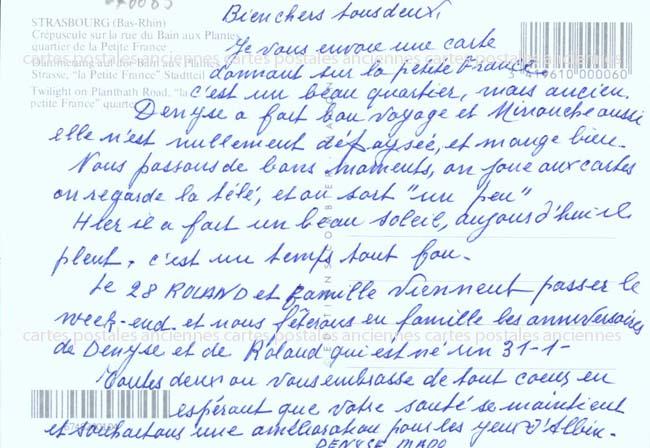 Bien chers tous deux,
STRASBOURG (Bas-Rhin)
Crépuscule sur la rue du Bain aux Plantes,
quartier de la Petite France
Strasse, "la Petite France" Stadtteil
Twilight on Plantbath Road, "la
petite France" quarter
3 610 000060
Je vous envoie une carte
donnant sur la petite France.
c'est un beau quartier, mais ancien.
Denyse a fait bon voyage et Minouche aussi
elle n'est nullement dépaysée, et mange bien.
Nous passons de bons moments, on joue aux cartes
on regarde la télé, et on sort "un peu"
Hier il a fait un beau soleil, aujourd'hui il
pleut, c'est un temps tout fou.
Le 28 ROLAND et famille viennent passer le
week-end et nous fêterons en famille les anniversaires
de Denyse et de Roland qui est né un 31-1-
Toutes deux on vous embrasse de tout coeur en
espérant que votre santé se maintient
et souhaitons une amélioration pour les yeux d'Albin.
cartes postales anciennes cartes postales anciennes cartes postales anciennes
cartes postales anciennes cartes postales anciennes cartes postales anciennes